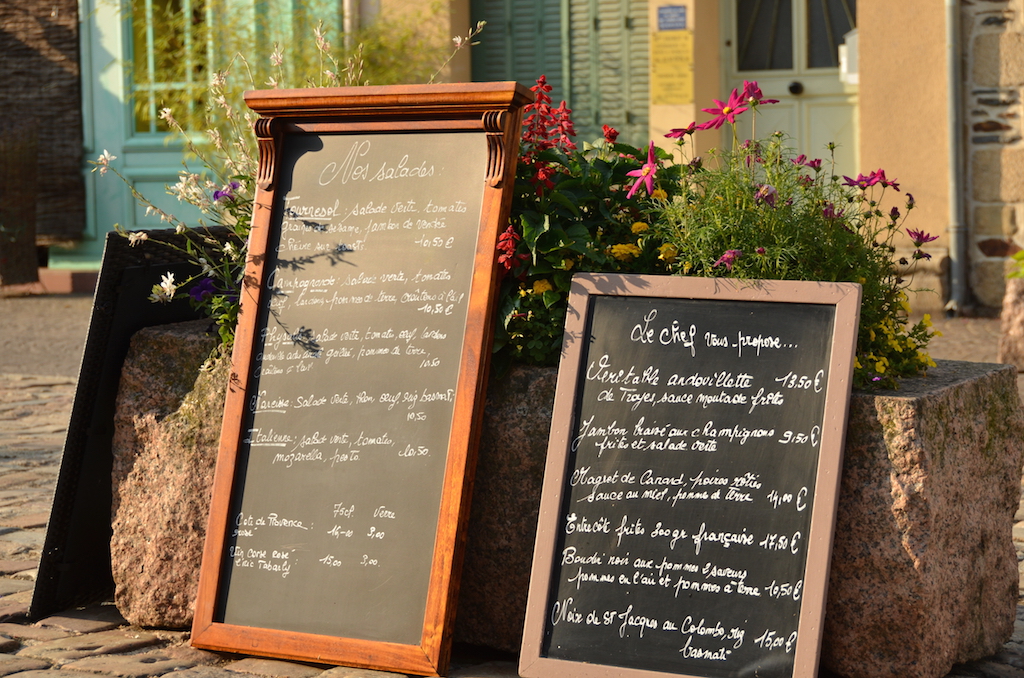 Nos salades:
Tournesol: salade verte, tomates
graines de sésame, jambon de vendée
chèvre sur toasti 10,50 €
Campagnarde: salade verte, tomates
œuf, lardons pommes de terre, croutons à l'ail
10,50
salade verte, tomate, œuf, lardons
pommes de terre,
croutons à l'ail 10.50
Narcisse: Salade verte, thon, œuf, riz basmati
10,50
Italienne: salade verte, tomates,
mozarella, pesto. 10,50
75cl Verre
Cote de Provence:
rosé 14.00 3,00
Vin corse rosé
15.00 3,00
Le chef vous propose...
Véritable andouillette 13,50 €
de Troyes, sauce moutade frites
Jambon braisé aux champignons 9,50 €
frites et salade verte
Magret de Canard, poires roties
sauce au miel, pomme de terre 14,00 €
Entrecôte frites 300gr française 17,50 €
Boudin noir aux pommes 2 saveurs
pommes en l'air et pommes à terre 10,50 €
Noix de St Jacques au Colombo, riz
basmati 15,00 €